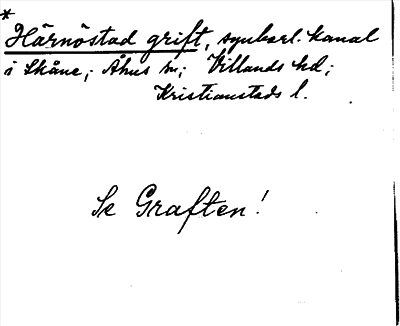 *
Härnöstad grift, synbarl. kanal
i Skåne; Åhus sn; Villands hd;
Kristianstads l.
Se Graften!